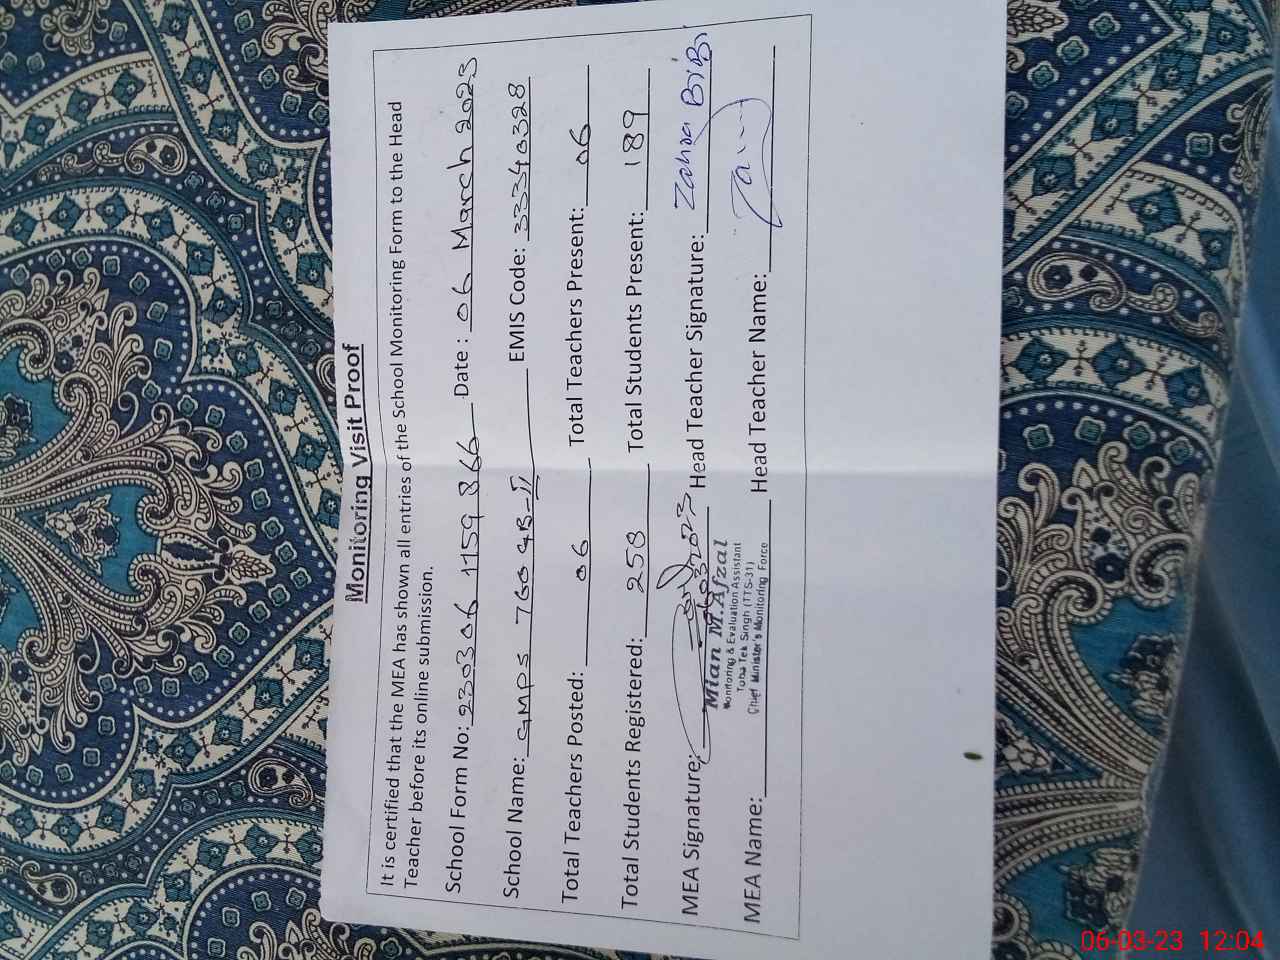 Monitoring Visit Proof
It is certified that the MEA has shown all entries of the School Monitoring Form to the Head
Teacher before its online submission.
School Form No: 230306 1159 866 Date : 06 March 2023
School Name: GMPS 760 GB-II EMIS Code: 33340328
Total Teachers Posted: 06 Total Teachers Present: 06
Total Students Registered: 258 Total Students Present: 189
MEA Signature: Head Teacher Signature: Zahra BiBi
Mian M.Afzal
Monitoring & Evaluation Assistant
Toba Tek Singh (TTS-31)
Chief Minister's Monitoring Force
MEA Name: Head Teacher Name:
06-03-23 12:04